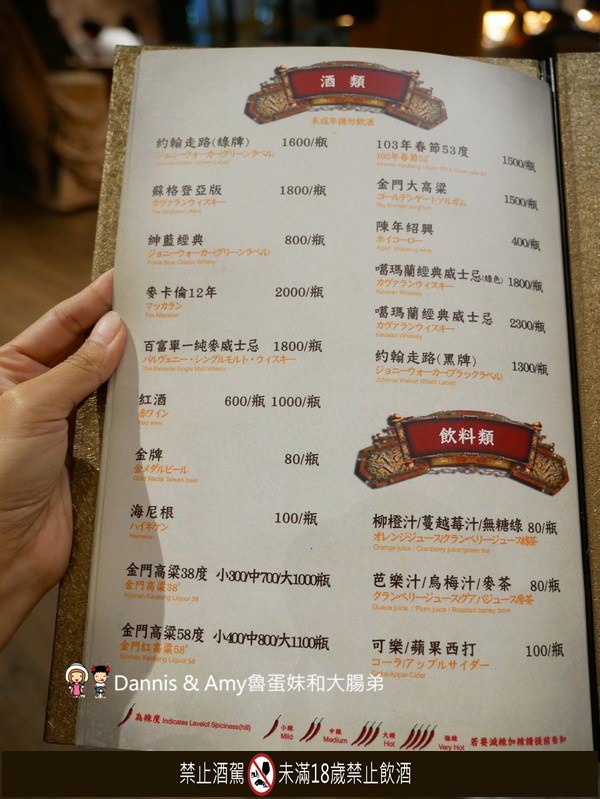 酒類
未成年請勿飲酒
約翰走路(綠牌) 1600/瓶
ジョニーウォーカー(グリーンラベル)
Johnnie Walker (Green Label)
蘇格登亞版 1800/瓶
カヴァランウィスキー
The Singleton (Asia)
紳藍經典 800/瓶
ジョニーウォーカー(グリーンラベル)
Prime Blue Classic Whisky
麥卡倫12年 2000/瓶
マッカラン
The Macallan
百富單一純麥威士忌 1800/瓶
バルヴェニー・シングルモルト・ウィスキー
The Balvenie Single Malt Whisky
紅酒 600/瓶 1000/瓶
赤ワイン
Red wine
金牌 80/瓶
金メダルビール
Gold Medal Taiwan beer
海尼根 100/瓶
ハイネケン
Heineken
金門高粱38度 小300/中700/大1000/瓶
金門高粱38°
Kinmen Kaoliang Liquor 38
金門高粱58度 小400/中800/大1100/瓶
金門紅高粱58°
Kinmen Kaoliang Liquor 58
103年春節53度 1500/瓶
103年春節53°
金門大高粱 1500/瓶
ゴールデンゲートソルガム
Big Kinmen sorghum
陳年紹興 400/瓶
ホイコーロー
Aged shaoxing wine
噶瑪蘭經典威士忌(綠色) 1800/瓶
カヴァランウィスキー
Kavalan Whiskey
噶瑪蘭經典威士忌 2300/瓶
カヴァランウィスキー
Kavalan Whiskey
約翰走路(黑牌) 1300/瓶
ジョニーウォーカー(ブラックラベル)
Johnnie Walker (Black Label)
飲料類
柳橙汁/蔓越莓汁/無糖綠 80/瓶
オレンジジュース/クランベリージュース/緑茶
Orange juice / Cranberry juice/green tea
芭樂汁/烏梅汁/麥茶 80/瓶
クランベリージュース/グアバジュース/麥茶
Guava juice / Plum juice / Roasted barley drink
可樂/蘋果西打 100/瓶
コーラ/アップルサイダー
Coke/Apple Cider
Dannis & Amy魯蛋妹和大腸弟
為辣度 Indicates Levelof Spiciness(hill) 小辣 Mild 中辣 Medium 大辣 Hot 極辣 Very Hot 若要減辣加辣請提前告知
禁止酒駕 未滿18歲禁止飲酒